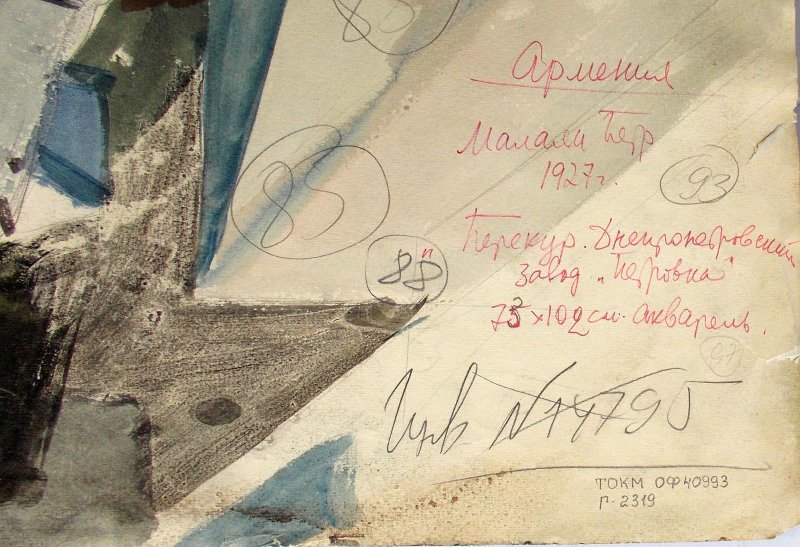 85
Армения
Малали Петр
1927г.
93
85
88
Перекур. Днепропетровский
завод „Петровка"
73 х 102 см. акварель.
91
Инв №14795
ТОКМ ОФ40993
Г-2319